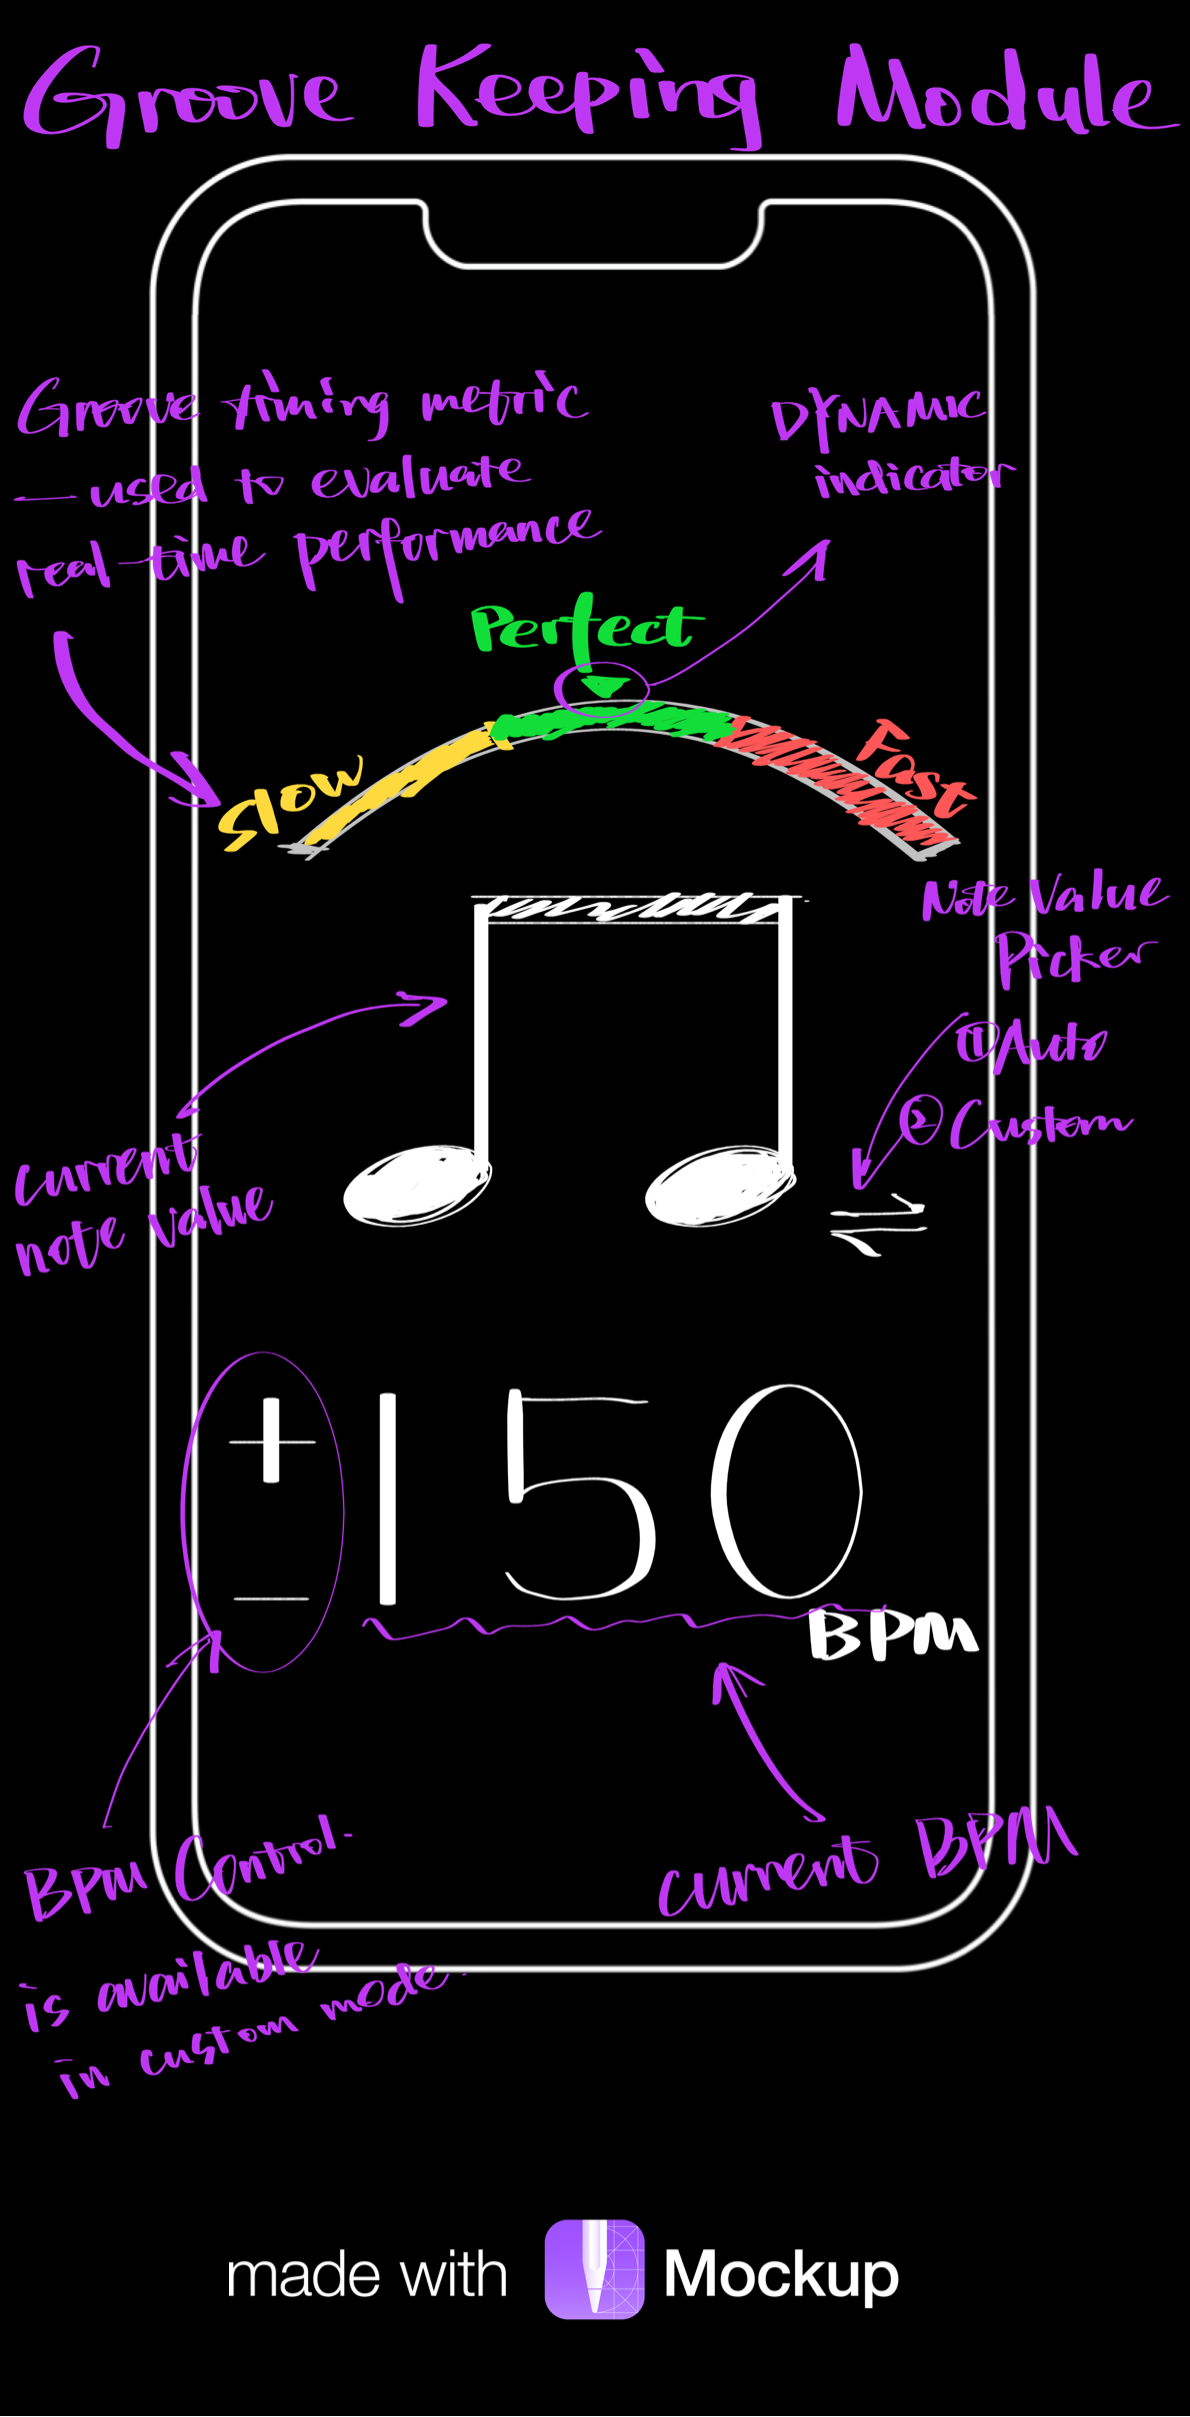 Groove Keeping Module
Groove timing metric
— used to evaluate
real-time performance
DYNAMIC
indicator
Perfect
Slow
Fast
Note Value
Picker
① Auto
② Custom
current
note value
+
150
—
BPM
BPM Control.
is available
in custom mode.
current BPM
made with Mockup